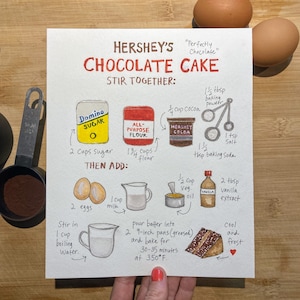 HERSHEY'S
"Perfectly
Chocolate"
CHOCOLATE CAKE
STIR TOGETHER:
Domino
SUGAR
2 cups sugar
ALL-
PURPOSE
FLOUR
1 3/4 cups
flour
3/4 cup cocoa
HERSHEY'S
COCOA
1 1/2 tsp
baking
powder
1 tsp
salt
1 1/2
tsp baking soda
THEN ADD:
2 eggs
1 cup
milk
1/2 cup
veg
oil
2 tsp
vanilla
extract
Stir in
1 cup
boiling
water
pour batter into
2 9-inch pans (greased)
and bake for
30-35 minutes
at 350°F
Cool
and
frost